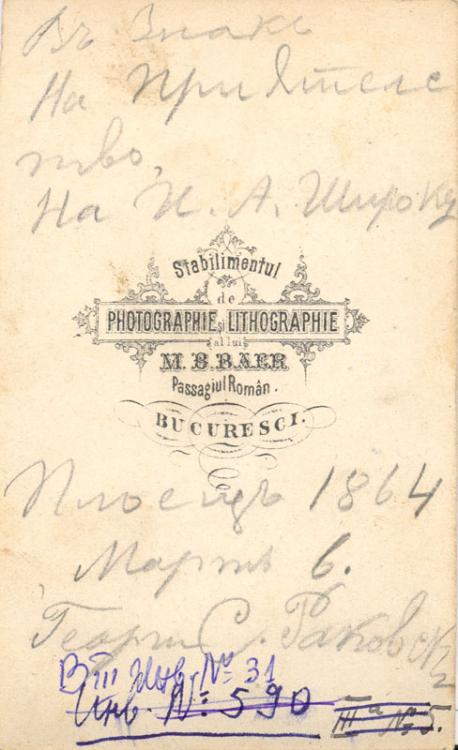 Въ Знакъ
На Приятелс
тво,
На И. А. Широку
Stabilimentul
de
PHOTOGRAPHIE și LITHOGRAPHIE
al lui
M. B. BAER
Passagiul Român.
BUCURESCI.
Плоещъ 1864
Мартъ 6.
Георги С. Раковски
В III Инв. № 31
Инв. № 590 III а № 5.